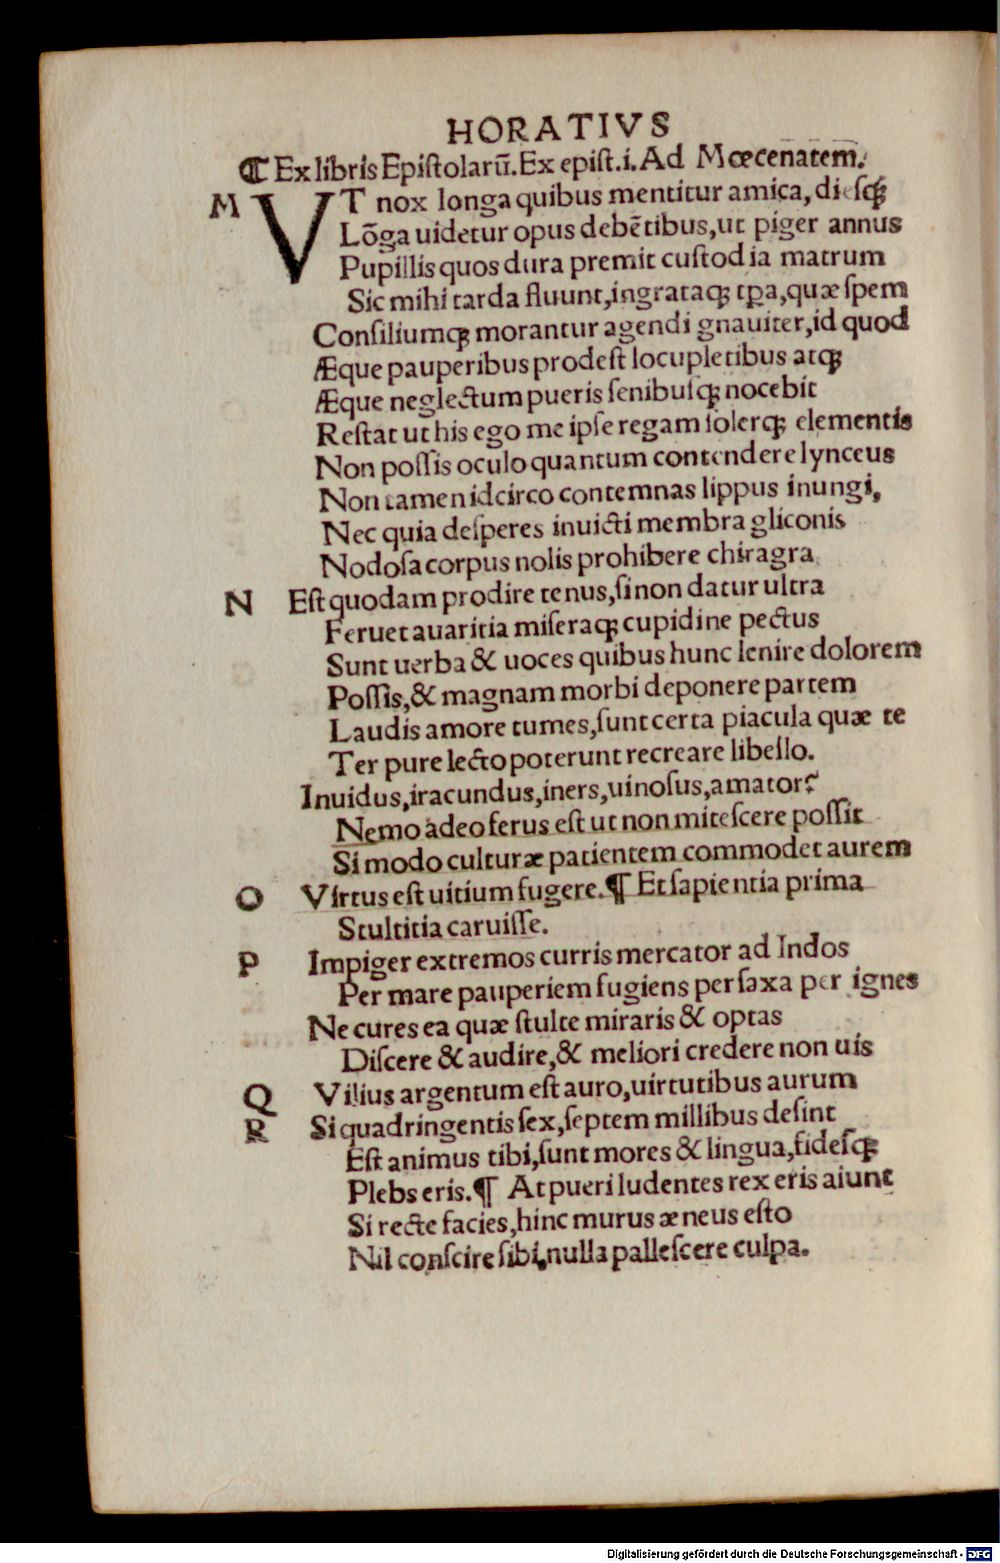 HORATIVS
⸿ Ex libris Epiſtolarū. Ex epiſt. i. Ad Mœcenatem.
M VT nox longa quibus mentitur amica, dieſqꝫ
Lōga uidetur opus debētibus, ut piger annus
Pupillis quos dura premit cuſtodia matrum
Sic mihi tarda fluunt, ingrataqꝫ tꝑa, quæ ſpem
Conſiliumqꝫ morantur agendi gnauiter, id quod
Æque pauperibus prodeſt locupletibus atqꝫ
Æque neglectum pueris ſenibuſqꝫ nocebit
Reſtat ut his ego me ipſe regam ſolerqꝫ elementis
Non poſſis oculo quantum contendere lynceus
Non tamen idcirco contemnas lippus inungi,
Nec quia deſperes inuicti membra gliconis
Nodoſa corpus nolis prohibere chiragra
N Eſt quodam prodire tenus, ſi non datur ultra
Feruet auaritia miſeraqꝫ cupidine pectus
Sunt uerba & uoces quibus hunc lenire dolorem
Poſſis, & magnam morbi deponere partem
Laudis amore tumes, ſunt certa piacula quæ te
Ter pure lecto poterunt recreare libello.
Inuidus, iracundus, iners, uinoſus, amator?
Nemo adeo ferus eſt ut non miteſcere poſſit
Si modo culturæ patientem commodet aurem
O Virtus eſt uitium fugere. ¶ Et ſapientia prima
Stultitia caruiſſe.
P Impiger extremos curris mercator ad Indos
Per mare pauperiem fugiens per ſaxa per ignes
Ne cures ea quæ ſtulte miraris & optas
Diſcere & audire, & meliori credere non uis
Q Vilius argentum eſt auro, uirtutibus aurum
R Si quadringentis ſex, ſeptem millibus deſint
Eſt animus tibi, ſunt mores & lingua, fideſqꝫ
Plebs eris. ¶ At pueri ludentes rex eris aiunt
Si recte facies, hinc murus æneus eſto
Nil conſcire ſibi, nulla palleſcere culpa.
Digitalisierung gefördert durch die Deutsche Forschungsgemeinschaft - DFG